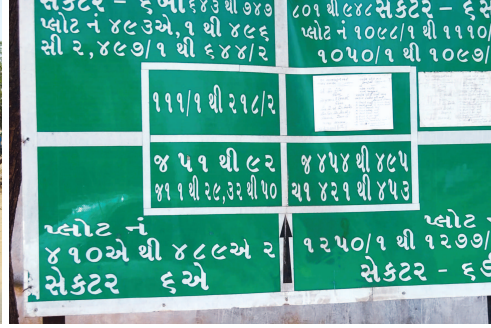 સેક્ટર – ૬બી ૬૪૩ થી ૭૪૭
પ્લોટ નં ૪૯૩એ,૧ થી ૪૯૬
સી ૨,૪૯૭/૧ થી ૬૪૪/૨
૮૦૧ થી ૯૪૮ સેક્ટર – ૬સ
પ્લોટ નં ૧૦૯૮/૧ થી ૧૧૧૦/
૧૦૫૦/૧ થી ૧૦૯૭/
૧૧૧/૧ થી ૨૧૮/૨
જ ૫૧ થી ૯૨
જ૧ ૧ થી ૨૯,૩૨ થી ૫૦
જ ૪૫૪ થી ૪૯૫
ચ૧ ૪૨૧ થી ૪૫૩
પ્લોટ નં
૪૧૦એ થી ૪૮૯એ ૨
સેક્ટર ૬એ
પ્લોટ
૧૨૫૦/૧ થી ૧૨૭૭/
સેક્ટર – ૬ડ